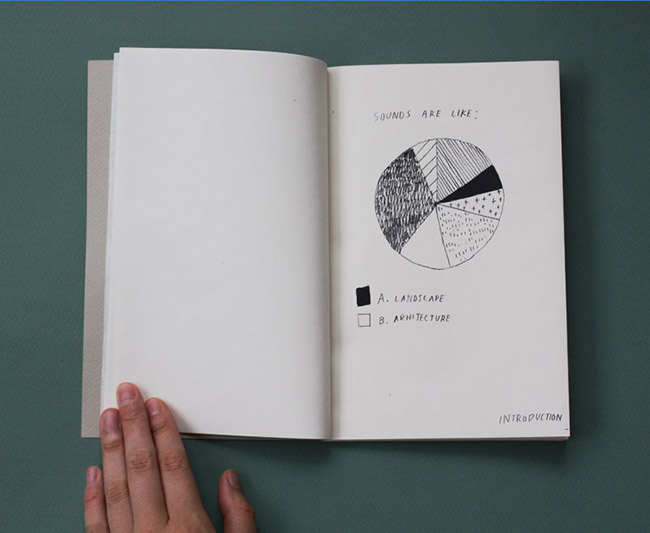 SOUNDS ARE LIKE:
A. LANDSCAPE
B. ARHITECTURE
INTRODUCTION